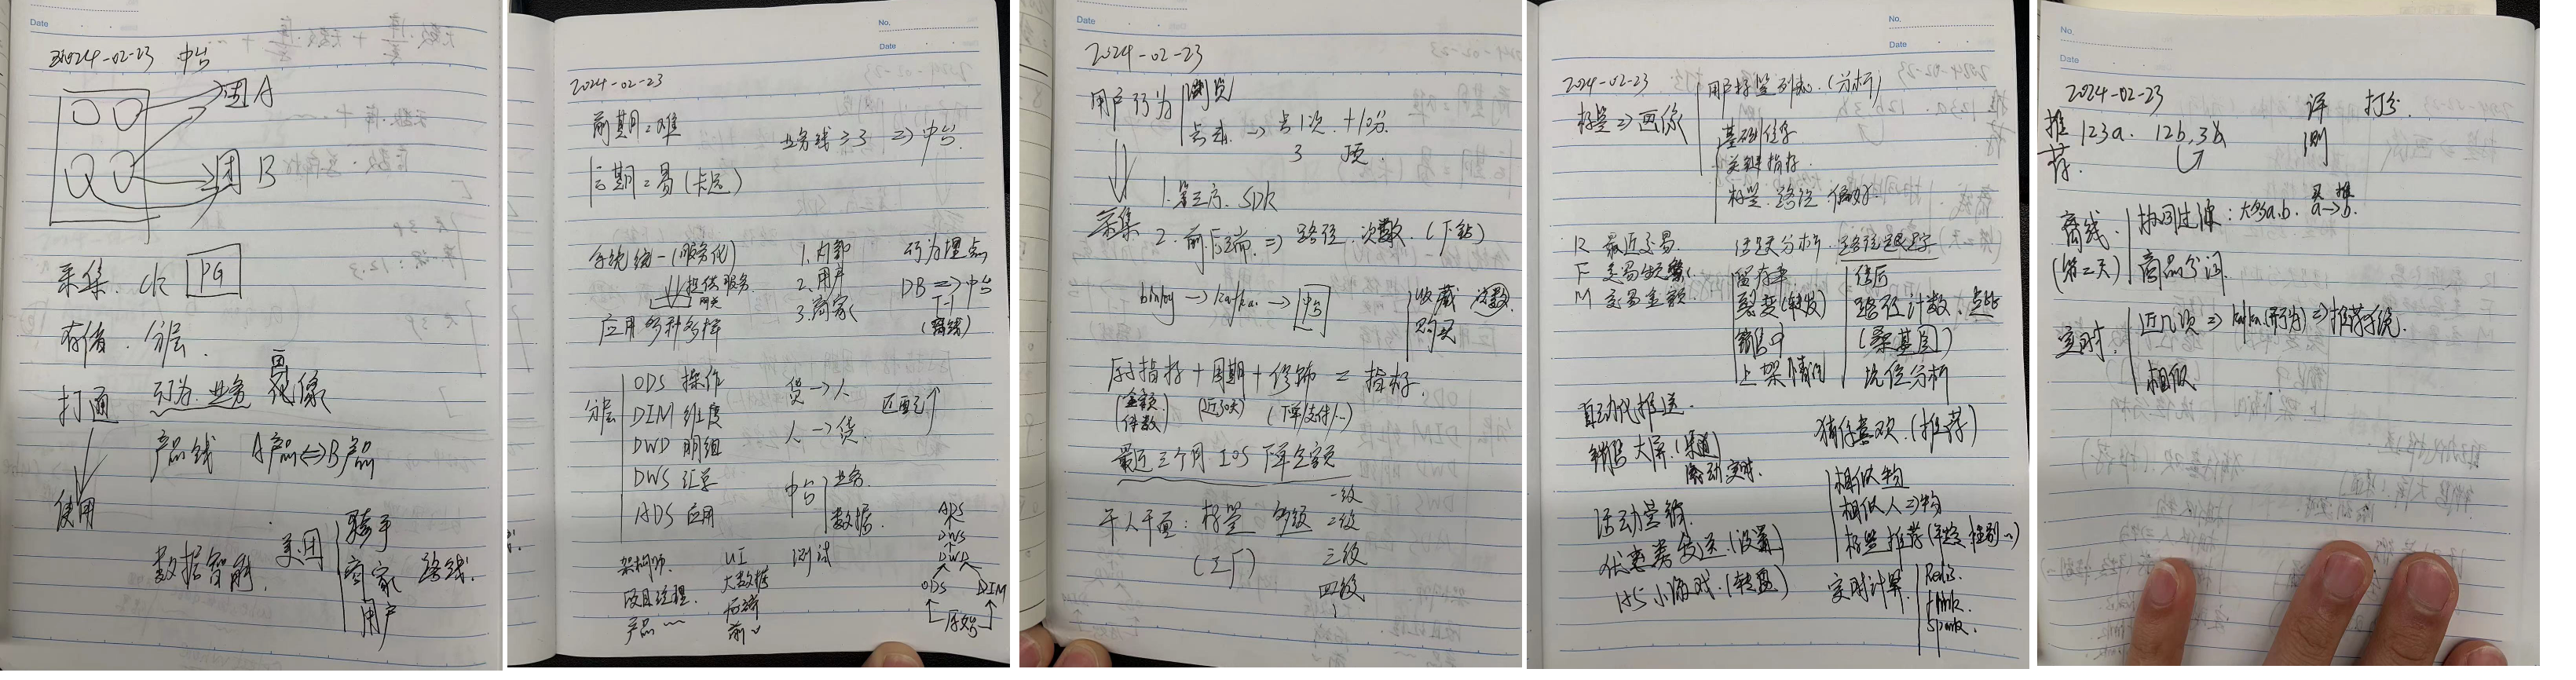 Date
2024-02-23 中台
团A
团B
采集. ck PG
存储. 分层.
打通 行为. 业务 画像
产品线 A产品⇔B产品
使用
数据智能. 美团 骑手
商家 路线.
用户
No.
Date
2024-02-23
前期:难
业务线≥3 ⇒ 中台.
后期:易(卡运)
系统统一(服务化)
提供服务.
应用多种多样
1.内部
2.用户
3.商家
行为埋点
DB⇒中台
T-1
(离线)
分层
ODS 操作
DIM 维度
DWD 明细
DWS 汇总
ADS 应用
货→人
人→货.
匹配
中台 业务.
数据.
架构师.
项目经理.
产品
UI
大数据
后端
前
测试
ADS
DWS
DWD
ODS DIM
原始
Date
2024-02-23
用户行为 浏览
点击 → 点1次. +10分.
3 顶.
采集
1.第三方. SDK
2.前.后端. ⇒ 路径. 次数. (下钻)
binlog → kafka. → 中台
收藏 次数.
购买
原子指标 + 周期 + 修饰 = 指标.
(金额. (近30天) (下单/支付/...)
件数)
最近三个月 IOS 下单金额
千人千面: 标签 多级 一级
二级
(工厂) 三级
四级
No.
Date
2024-02-23
标签⇒画像
用户标签列表. (分析)
基础信息
关键指标.
标签. 路径 偏好.
R 最近交易.
F 交易频繁.
M 交易金额.
活跃分析.
留存率
裂变(转发)
销售中
上架情况
路径跟踪
售后
路径计数. 点击
(桑基图)
坑位分析
自动化推送.
销售大屏.(渠道)
滚动实时.
活动营销.
优惠券发送.(设置)
H5 小游戏.(转盘)
猜你喜欢.(推荐)
相似物
相似人⇒物
标签推荐(年龄 性别..)
实时计算. Redis.
flink.
Spark.
No.
Date
2024-02-23
推荐. 123a. 12b, 3a
评测 打分.
离线.
(第二天)
协同过滤: 大多a.b. 买a→推b.
商品分词.
实时.
近几次 ⇒ kafka(行为) ⇒ 推荐系统.
相似.